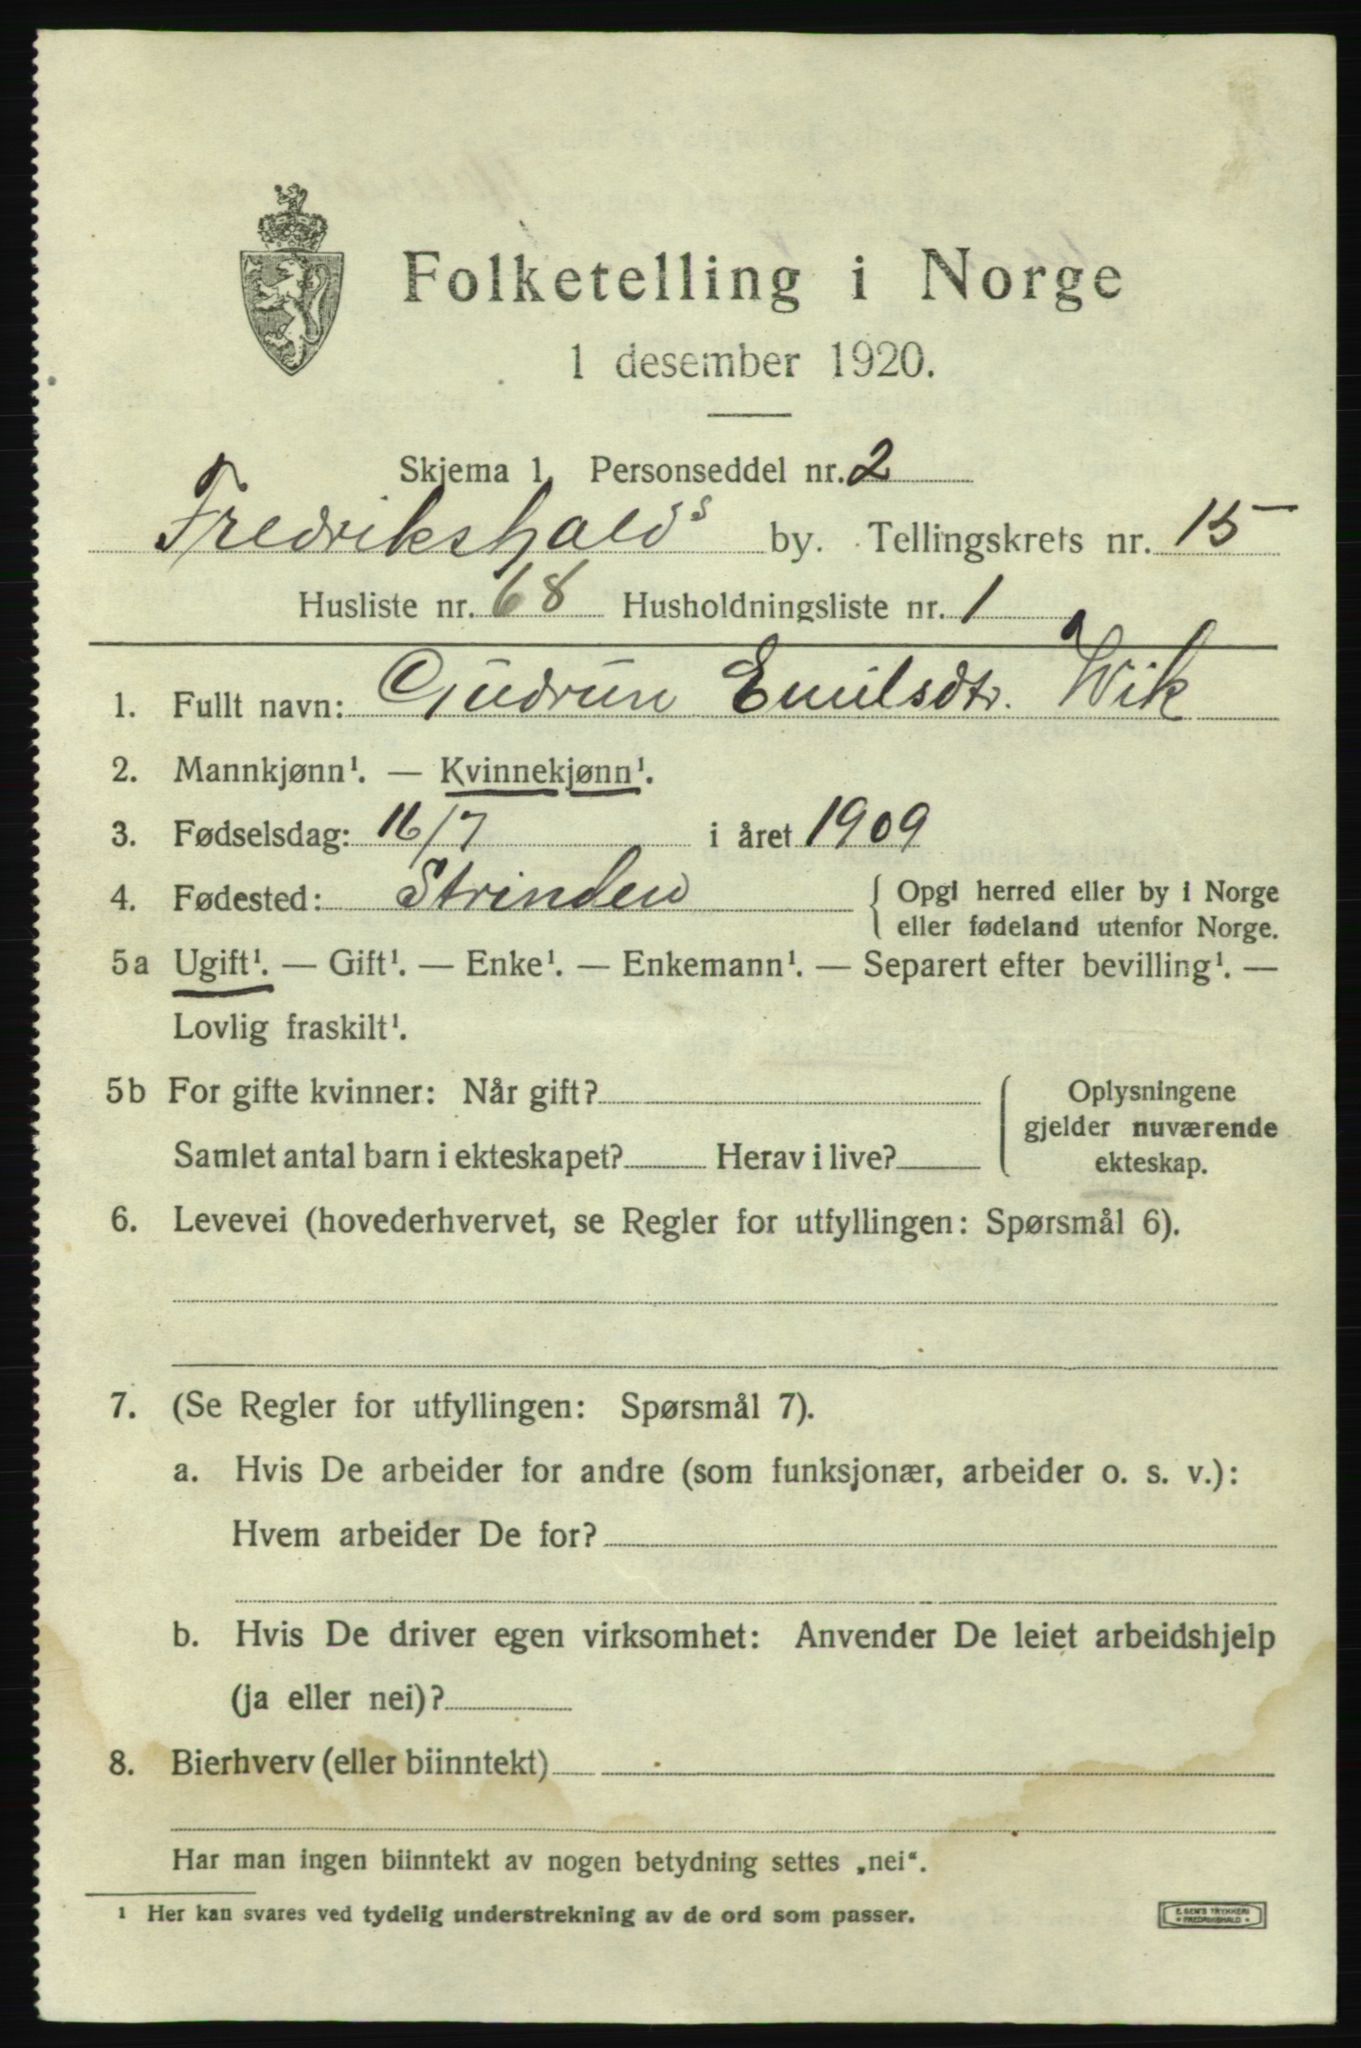 Folketelling i Norge
1 desember 1920.
Skjema 1. Personseddel nr. 2
Fredrikshalds by. Tellingskrets nr. 15
Husliste nr. 68 Husholdningsliste nr. 1
1. Fullt navn: Gudrun Emilsdtr. Wik
2. Mannkjønn¹. — Kvinnekjønn¹.
3. Fødselsdag: 16/7 i året 1909
4. Fødested: Strinden { Opgi herred eller by i Norge
eller fødeland utenfor Norge.
5a Ugift¹. — Gift¹. — Enke¹. — Enkemann¹. — Separert efter bevilling¹. —
Lovlig fraskilt¹.
5b For gifte kvinner: Når gift?
Samlet antal barn i ekteskapet? Herav i live?
Oplysningene
gjelder nuværende
ekteskap.
6. Levevei (hovederhvervet, se Regler for utfyllingen: Spørsmål 6).
7. (Se Regler for utfyllingen: Spørsmål 7).
a. Hvis De arbeider for andre (som funksjonær, arbeider o. s. v.):
Hvem arbeider De for?
b. Hvis De driver egen virksomhet: Anvender De leiet arbeidshjelp
(ja eller nei)?
8. Bierhverv (eller biinntekt)
Har man ingen biinntekt av nogen betydning settes „nei“.
¹ Her kan svares ved tydelig understrekning av de ord som passer.
E. SEM'S TRYKKERI
FREDRIKSHALD